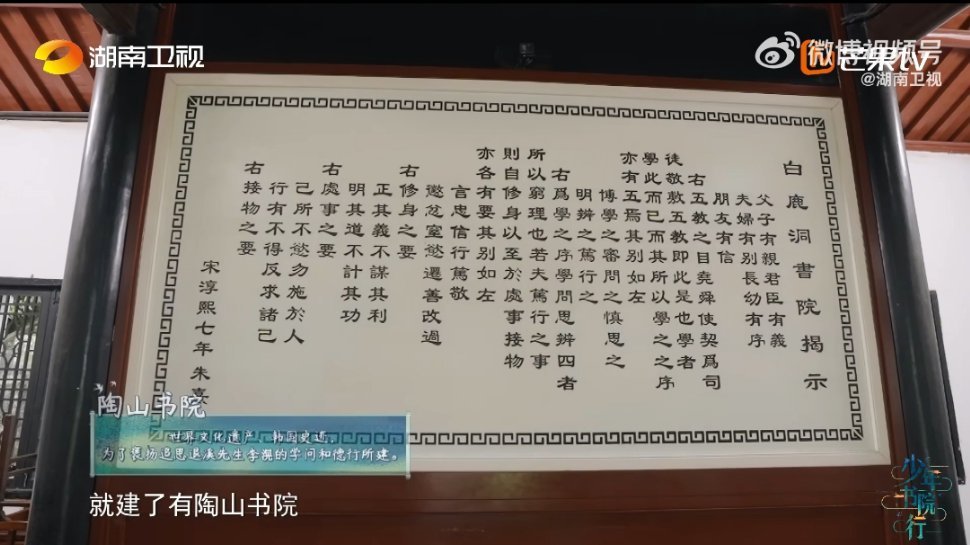 湖南卫视
微博视频号
芒果tv
@湖南卫视
白鹿洞書院揭示
父子有親君臣有義
夫婦有別長幼有序
朋友有信
右五教之目堯舜使契爲司
徒敬敷五教即此是也學者
學此而已而其所以學之之序
亦有五焉其別如左
博學之審問之慎思之
明辨之篤行之
右爲學之序學問思辨四者
所以窮理也若夫篤行之事
則自修身以至於處事接物
亦各有要其別如左
言忠信行篤敬
懲忿窒慾遷善改過
右修身之要
正其義不謀其利
明其道不計其功
右處事之要
己所不慾勿施於人
行有不得反求諸己
右接物之要
宋淳熙七年朱熹
陶山书院
世界文化遗产，韩国史迹，
为了褒扬追思退溪先生李滉的学问和德行所建。
就建了有陶山书院
少年
书院
行